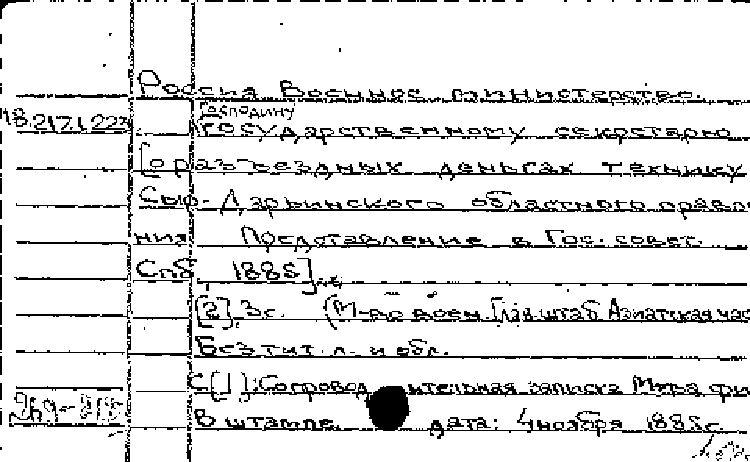 Россия Военное министерство.
18.217.1.223
Господину
государственному секретарю
[о разъездных деньгах технику
Сыр-Дарьинского областного правле
ния. Представление в Гос. совет.
Спб, 1885].
[2], 3 с. (М-во воен. Гл. штаб Азиатская час
Без тит. л. и обл.
С [1]: Сопроводительная записка М-ва фи
В штампе дата: 4 ноября 1885 г.